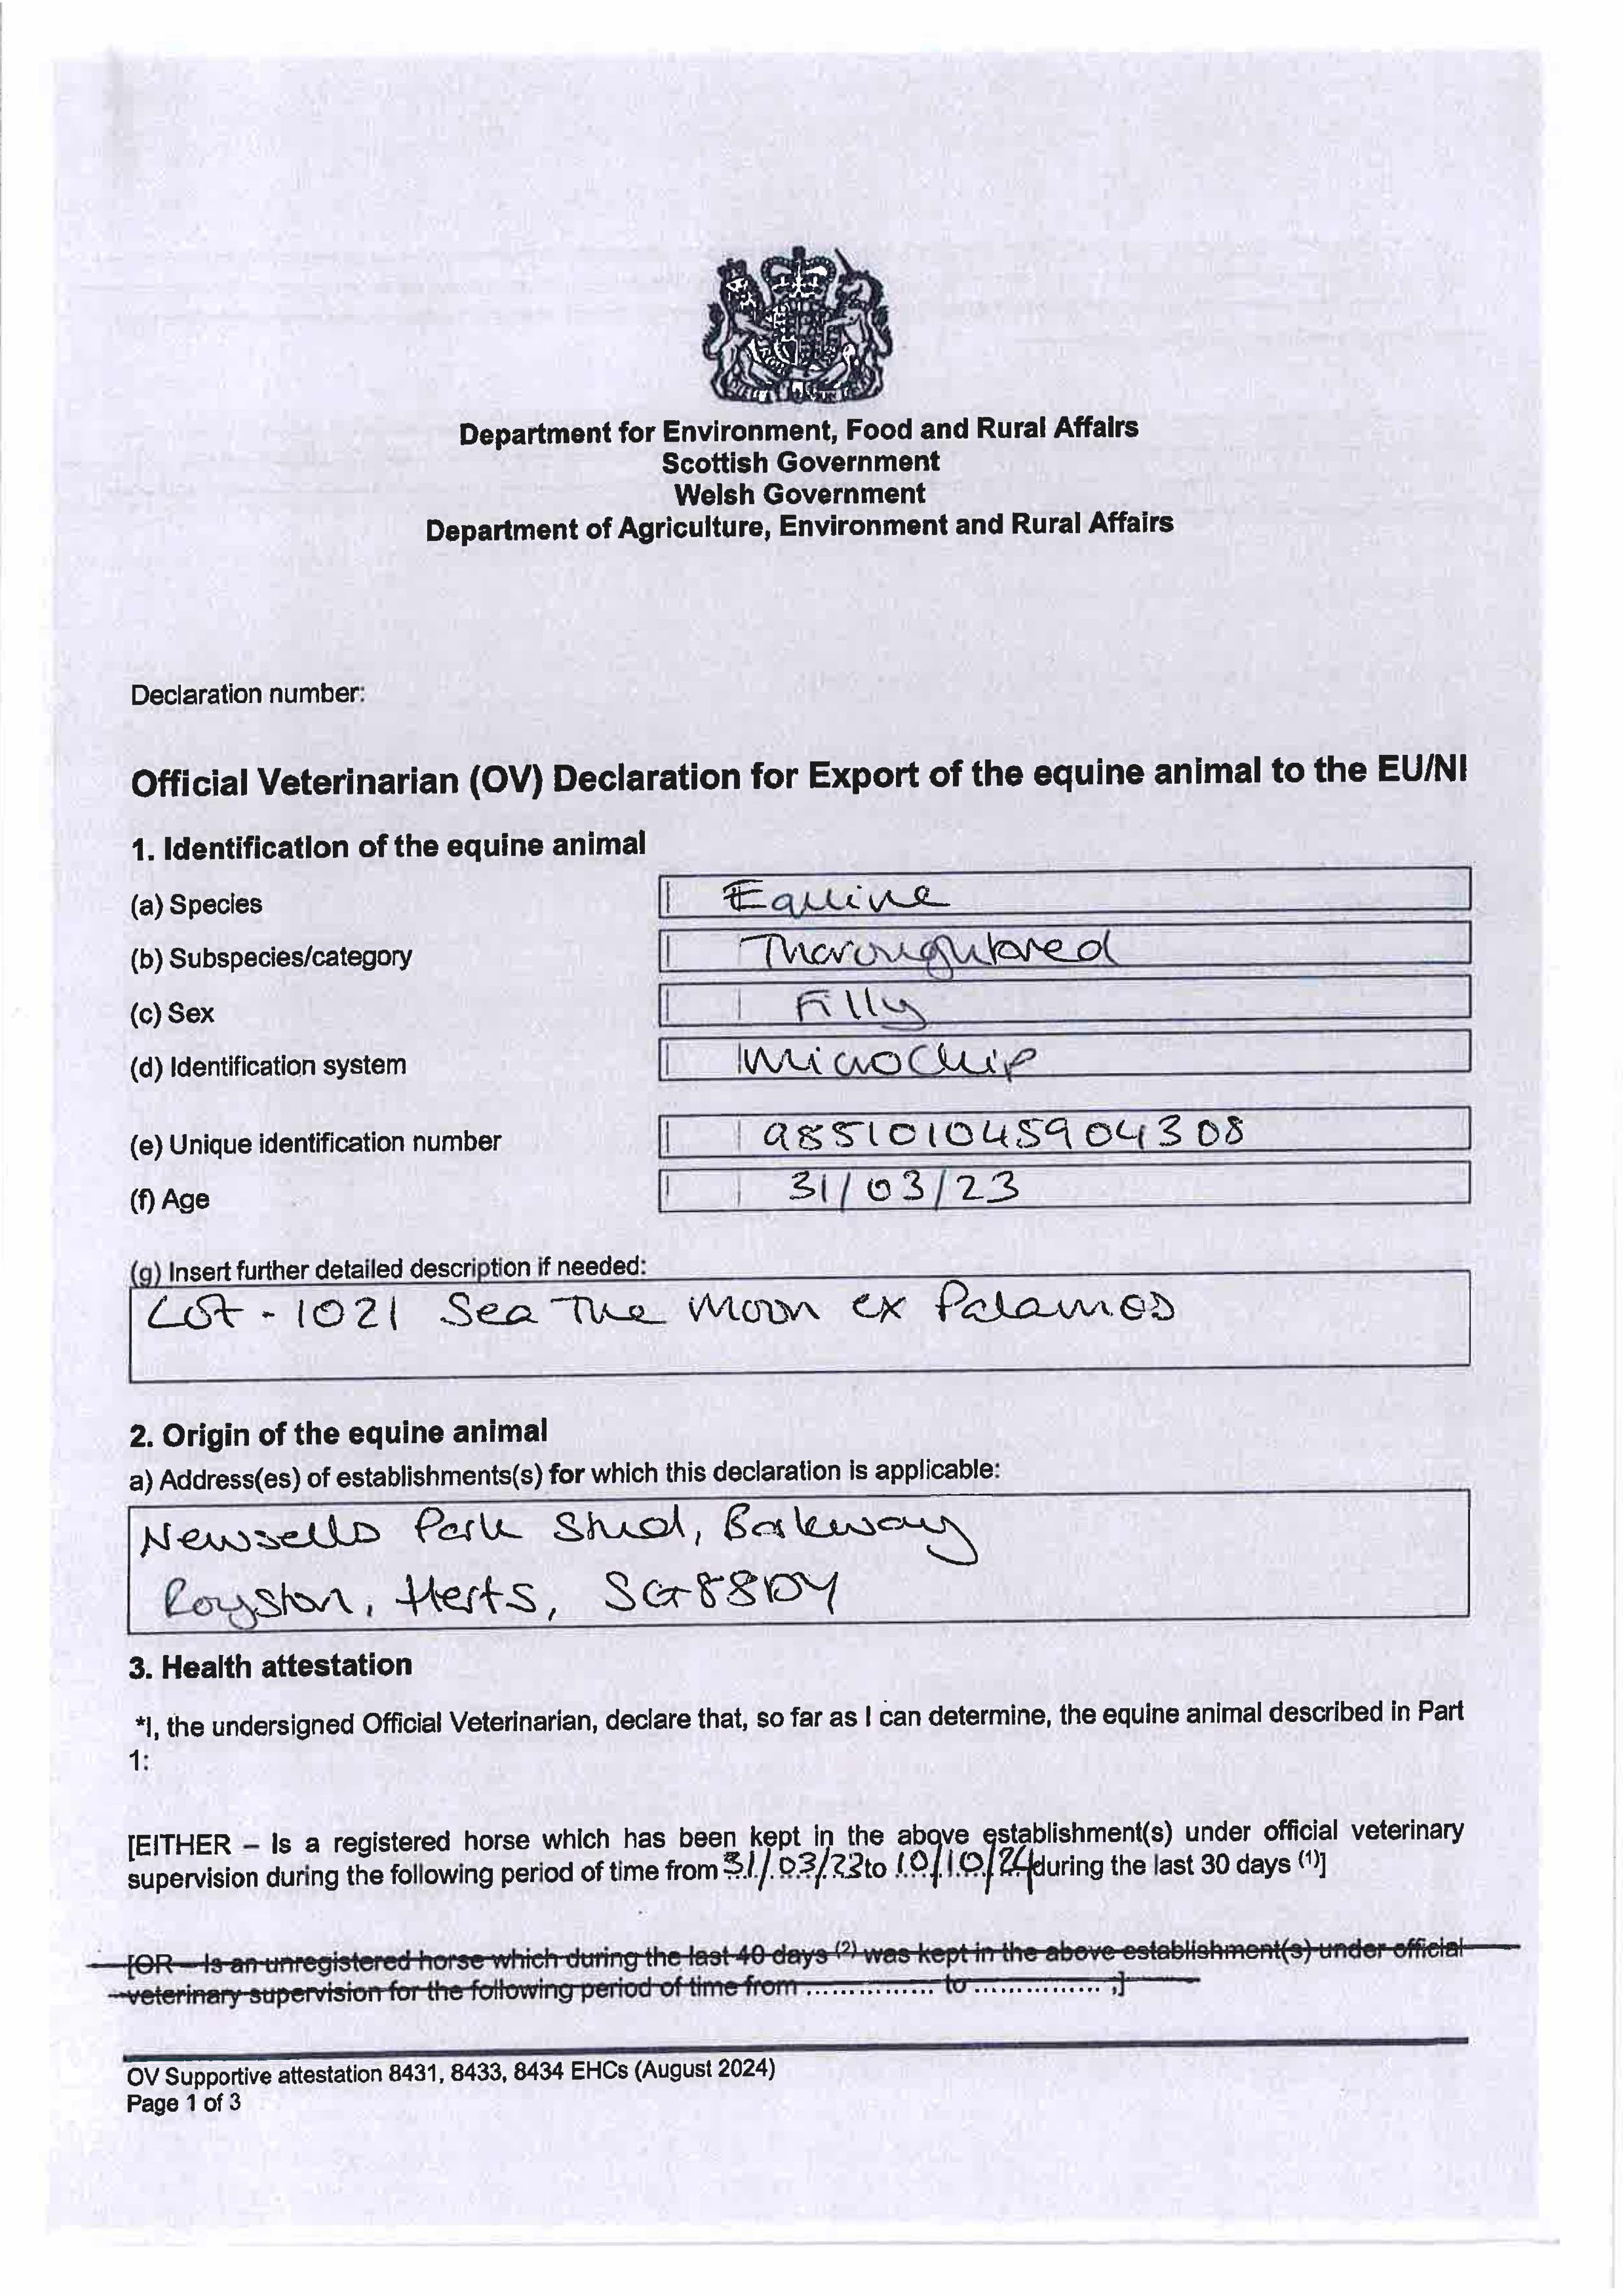 Department for Environment, Food and Rural Affairs
Scottish Government
Welsh Government
Department of Agriculture, Environment and Rural Affairs
Declaration number:
Official Veterinarian (OV) Declaration for Export of the equine animal to the EU/NI
1. Identification of the equine animal
(a) Species Equine
(b) Subspecies/category Thoroughbred
(c) Sex Filly
(d) Identification system Microchip
(e) Unique identification number 985101045904308
(f) Age 31/03/23
(g) Insert further detailed description if needed:
Lot - 1021 Sea The Moon ex Palamos
2. Origin of the equine animal
a) Address(es) of establishments(s) for which this declaration is applicable:
Newsells Park Stud, Barkway
Royston, Herts, SG8 8DY
3. Health attestation
*I, the undersigned Official Veterinarian, declare that, so far as I can determine, the equine animal described in Part
1:
[EITHER – Is a registered horse which has been kept in the above establishment(s) under official veterinary
supervision during the following period of time from 31/03/23 to 10/10/24 during the last 30 days (1)]
[OR – Is an unregistered horse which during the last 40 days (2) was kept in the above establishment(s) under official
veterinary supervision for the following period of time from ............... to ............... ;]
OV Supportive attestation 8431, 8433, 8434 EHCs (August 2024)
Page 1 of 3